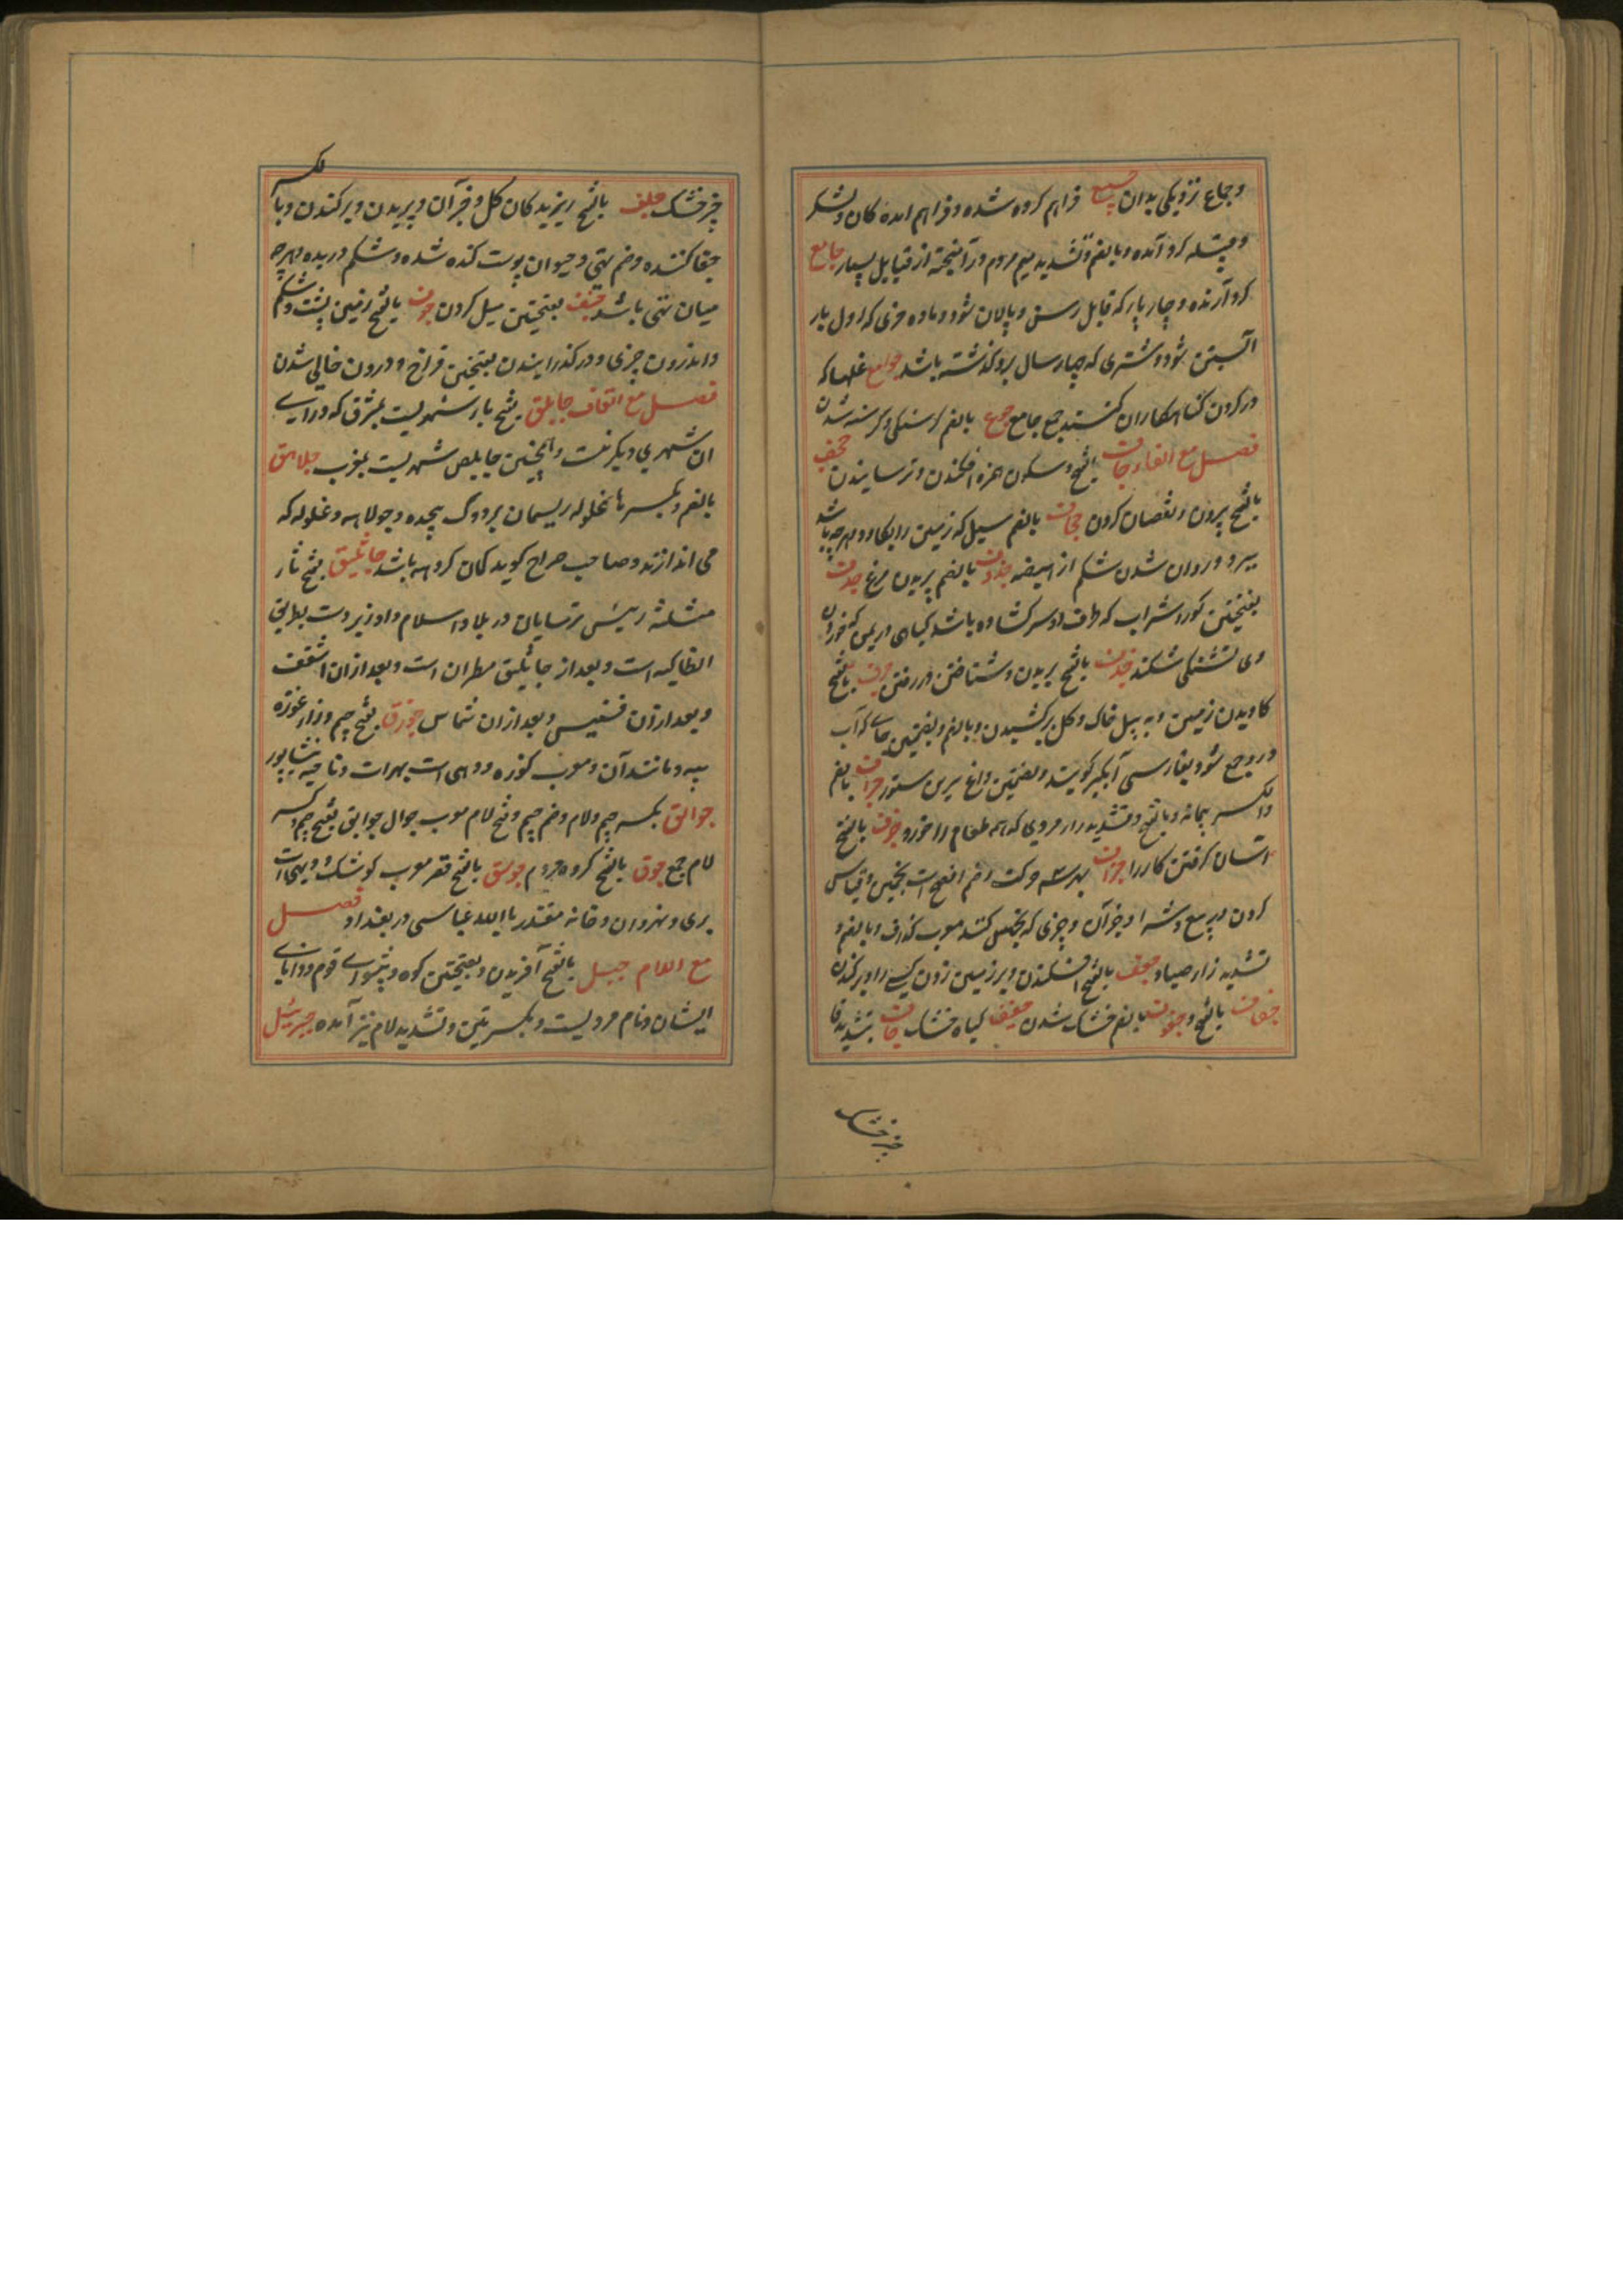 و جماع نزدیکی بدان جمیع فراهم کرده شده و فراهم امده کان و لشکر
و قبیله کرد آمده و بالضم و تشدید میم مردم درآمیخته از قبایل بسیار جامع
کرد آرنده و چارپا که قابل رسن و پالان شود و ماده خری که اول بار
آبستن شود و شتری که چهار سال برو کذشته باشد جوامع غلها که
در کردن کناهکاران کنند جمع جامع جوع بالضم کرسنکی و کرسنه شدن
فصل مع الفاء جاف بفتح و سکون همزه افکندن و ترسانیدن جحف
بالفتح بردن و نقصان کردن جحاف بالضم سیل که زمین را بکاود و هرچه باشد
ببرد و روان شدن شکم از هیضه جدف بالضم پریدن مرغ جدف
بفتحتین کور و شراب که ظرف او سر کشاده باشد و کیاهی در یمن که خوردن
وی تشنکی شکند جذف بالفتح بریدن و شتافتن در رفتن جرف بالفتح
کاویدن زمین و به بیل خاک و کل برکشیدن و بالضم و بضمتین جای که آب
درو جمع شود بفارسی آبکیر کویند و بضمتین داغ سرین ستور جراف بالضم
والکسر پیمانه و بالفتح و تشدید را مردی که همه طعام را خورد جزف بالفتح
آسان کرفتن کار را جزاف بهر سه حرکت و ضم افصح است بتخمین و قیاس
کردن در بیع و شرا و جز آن و چیزی که بتخمین کنند معرب کزاف و بالضم و
تشدید زا صیاد جعف بالفتح افکندن و بر زمین زدن کسی را و برکندن
جفاف بالفتح و جفوف بالضم خشک شدن جفیف کیاه خشک جاف بتشدید فا
چیز خشک
چیز خشک جلف بالفتح ریزیدکان کل و جز آن و بریدن و برکندن و بالکسر
جفا کننده و خم تهی و حیوان پوست کنده شده و شکم دریده و هرچه
میان تهی باشد جنف بفتحتین میل کردن جوف بالفتح زمین پست و شکم
و اندرون چیزی و در کذرانیدن بفتحتین فراخ و درون خالی شدن
فصل مع القاف جابلق بفتح با شهریست بمشرق که ورای
ان شهری دیکر نیست و همچنین جابلص شهریست بمغرب جلاهق
بالضم و بکسر ها غلوله ریسمان بر دوک پیچیده و جولاهه و غلوله که
می اندازند و صاحب صراح کوید کمان کروهه باشد جاثلیق بفتح ثا
مثلثه رئیس ترسایان در بلاد اسلام و او زیر دست بطریق
انطاکیه است و بعد از جاثلیق مطران است و بعد ازان اسقف
و بعد ازان قسیس و بعد ازان شماس جوزق بفتح جیم و زا غوزه
پنبه و مانند آن و معرب کوزه و دهی است بهرات و ناحیه نیشاپور
جوالق بکسر جیم و لام و ضم جیم و فتح لام معرب جوال جوالق بفتح جیم و کسر
لام جمع جوق بالفتح کروه مردم جوسق بالفتح قصر معرب کوشک و دیهی است
بری و نهروان و خانه مقتدر بالله عباسی در بغداد فصل
مع اللام جبل بالفتح آفریدن و بفتحتین کوه و پیشوای قوم و دانای
ایشان و نام مردیست و بکسرتین و تشدید لام نیز آمده جبرئیل